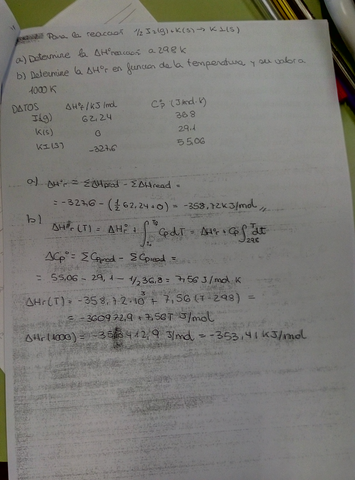 Para la reacción ½ I2(g) + K(s) → KI(s)
a) Determine la ΔHºreacción a 298 k
b) Determine la ΔHºr en función de la temperatura y su valor a
1000K
DATOS ΔHºf/KJ/mol Cºp (J/mol·K)
I2(g) 62,24 36.8
K(s) 0 29.1
KI(s) -327.6 55.06
a) ΔHºr = ΣΔHprod - ΣΔHreact =
= -327.6 - (½ 62,24 + 0) = -358,72 KJ/mol
b)
ΔHºr (T) = ΔHºr + ∫ Cp dT = ΔHºr + Cp ∫ dT
298
ΔCpº = ΣCpprod - ΣCpreact =
= 55.06 - 29,1 - ½ 36,8 = 7,56 J/mol K
ΔHr(T) = -358,72·10³ + 7,56 (T-298) =
= -360972,9 + 7,56T J/mol
ΔHr(1000) = -353412,9 J/mol = -353,41 KJ/mol